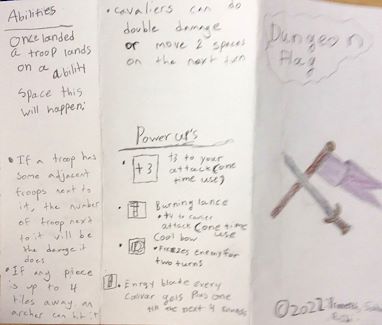 Abilities
Once landed
a troop lands
on a ability
space this
will happen:
• If a troop has
some adjacent
troops next to
it, the number
of troop next
to it will be
the damage it
does
• If any piece
is up to 4
tiles away, an
archer can hit it
• cavaliers can do
double damage
or move 2 spaces
on the next turn
Power up's
+3
+3 to your
attack (one
time use)
• Burning lance
attack (one time
use
• Cool bow
• Freezes enemy for
two turns
blade every
gets Plus one
the next 4
Dungeon
Flag
©2022